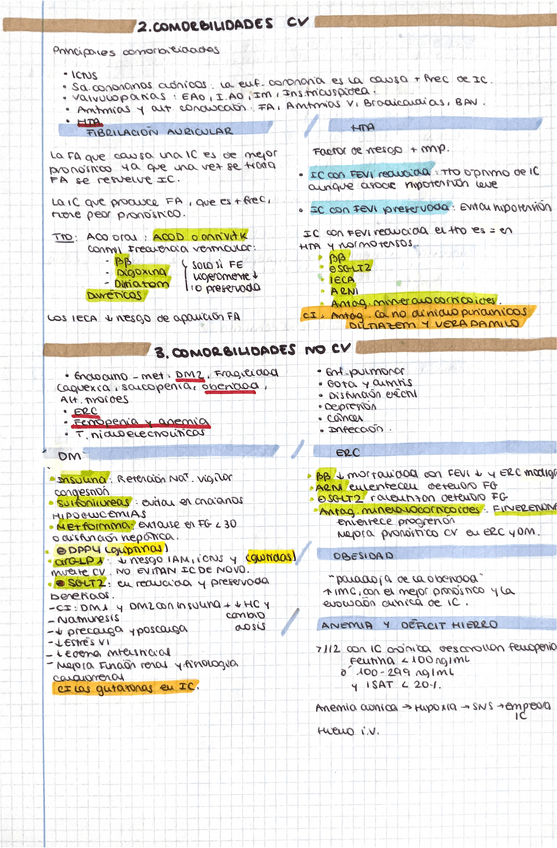 2. COMORBILIDADES CV
Principales comorbilidades
• ICTUS
• Sd. coronarios crónicos. La enf. coronaria es la causa + frec de IC.
• Valvulopatías: EAO, I.AO, IM, Ins. tricuspídea.
• Arritmias y alt conducción. FA, Arritmias V, Bradicardias, BAV.
• HTA
FIBRILACIÓN AURICULAR
La FA que causa una IC es de mejor
pronóstico ya que una vez se trata
FA se resuelve IC.
La IC que produce FA, que es + frec,
tiene peor pronóstico.
Tto: ACO oral: ACOD o antivit K
control frecuencia ventricular:
- ββ
- Digoxina
- Diltiazem
solo si FE
ligeramente ↓
o preservada
Diuréticos
Los IECA ↓ riesgo de aparición FA
HTA
Factor de riesgo + imp.
• IC con FEVI reducida: tto óptimo de IC
aunque asocie hipotensión leve
• IC con FEVI preservada: Evitar hipotensión
IC con FEVI reducida el tto es = en
HTA y normotensos.
• ββ
• iSGLT2
• IECA
• ARNI
• Antag. mineralocorticoides.
CI: Antag. Ca no dihidropiridínicos
DILTIAZEM Y VERAPAMILO
3. COMORBILIDADES NO CV
• Endocrino-met: DM2, Fragilidad
caquexia, sarcopenia, obesidad,
Alt. tiroides
• ERC
• Ferropenia y anemia
• T. hidroelectrolíticos
• Enf. pulmonar
• Gota y artritis
• Disfunción eréctil
• Depresión
• Cáncer
• Infección.
DM
• Insulina: Retención Na+. vigilar
congestión
• Sulfonilureas: evitar en ancianos
HIPOGLUCEMIAS
• Metformina: evitarse en FG < 30
o disfunción hepática.
• iDPP4 (gliptinas)
• arGLP1: ↓ riesgo IAM, ictus y (glutidas)
muerte CV. NO EVITAN IC DE NOVO.
• iSGLT2: en reducida y preservada
beneficios.
- CI: DM1 y DM2 con insulina + ↓ HC y
cambio
dosis
- Natriuresis
- ↓ precarga y poscarga
- ↓ Estrés VI
- ↓ Edema intersticial
- Mejora función renal y fisiología
cardiorrenal
CI las glitazonas en IC.
ERC
ββ ↓ mortalidad con FEVI ↓ y ERC
ARNI enlentecen deterioro FG
iSGLT2 ralentizan deterioro FG
Antag. mineralocorticoides: FINERENONA
enlentece progresión
Mejora pronóstico CV en ERC y DM.
OBESIDAD
"Paradoja de la obesidad"
↑ IMC, con el mejor pronóstico y la
evolución clínica de IC.
ANEMIA Y DÉFICIT HIERRO
7/12 con IC crónica desarrollan ferropenia
Ferritina < 100 ng/ml
ó 100-299 ng/ml
y ISAT < 20%.
Anemia crónica → Hipoxia → SNS → empeora
IC
Hierro i.v.